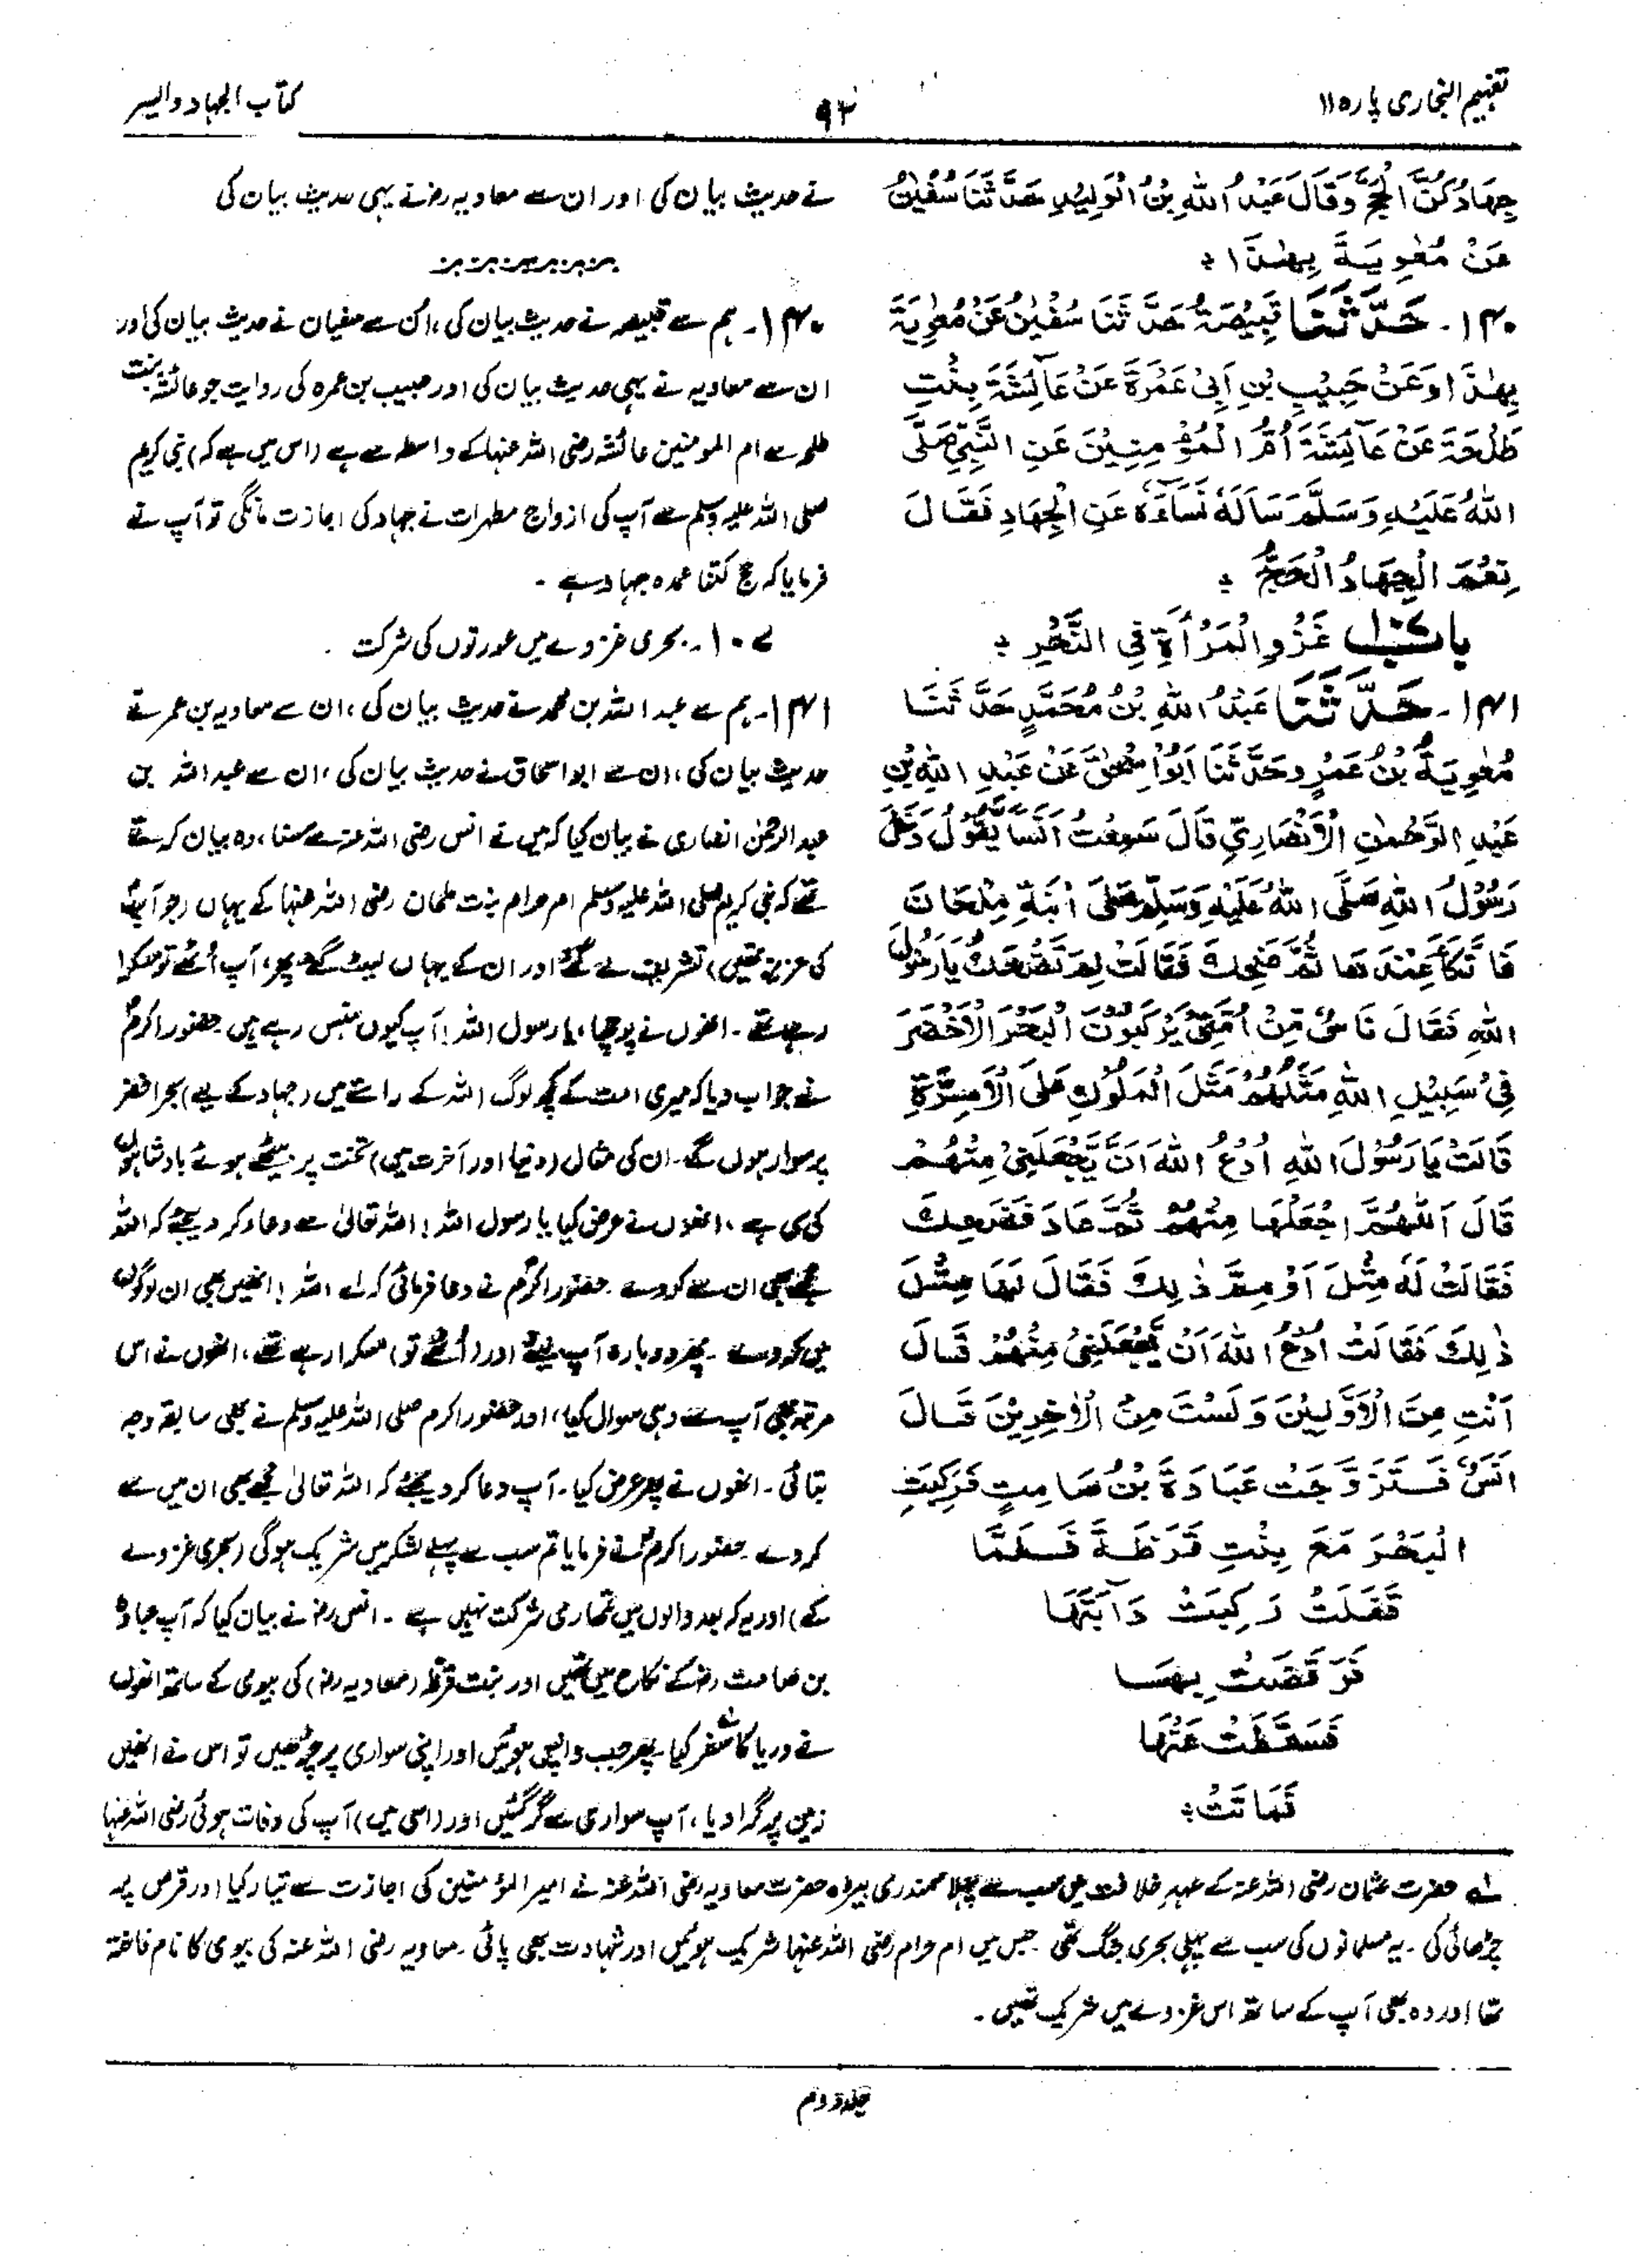 تفہیم البخاری پارہ ۱۱
۹۳
کتاب الجہاد والسیر
جِهَادُكُنَّ الْحَجُّ وَقَالَ عَبْدُ اللهِ بْنُ الْوَلِيْدِ حَدَّثَنَا سُفْيٰنُ
عَنْ مُعٰوِيَةَ بِهٰذَا ؞
۱۴۰۔ حَدَّثَنَا قَبِيْصَةُ حَدَّثَنَا سُفْيٰنُ عَنْ مُعٰوِيَةَ
بِهٰذَا وَعَنْ حَبِيْبِ بْنِ اَبِيْ عَمْرَةَ عَنْ عَآئِشَةَ بِنْتِ
طَلْحَةَ عَنْ عَآئِشَةَ اُمِّ الْمُؤْمِنِيْنَ عَنِ النَّبِيِّ صَلَّى
اللهُ عَلَيْهِ وَسَلَّمَ سَاَلَهٗ نِسَآؤُهٗ عَنِ الْجِهَادِ فَقَالَ
نِعْمَ الْجِهَادُ الْحَجُّ ؞
باب غَزْوِ الْمَرْأَةِ فِي الْبَحْرِ ؞
۱۴۱۔ حَدَّثَنَا عَبْدُ اللهِ بْنُ مُحَمَّدٍ حَدَّثَنَا
مُعٰوِيَةُ بْنُ عَمْرٍو حَدَّثَنَا اَبُوْاِسْحٰقَ عَنْ عَبْدِ اللهِ بْنِ
عَبْدِ الرَّحْمٰنِ الْاَنْصَارِيِّ قَالَ سَمِعْتُ اَنَسًا يَّقُوْلُ دَخَلَ
رَسُوْلُ اللهِ صَلَّى اللهُ عَلَيْهِ وَسَلَّمَ عَلَى ابْنَةِ مِلْحَانَ
فَاتَّكَأَ عِنْدَهَا ثُمَّ ضَحِكَ فَقَالَتْ لِمَ تَضْحَكُ يَارَسُوْلَ
اللهِ فَقَالَ نَاسٌ مِّنْ اُمَّتِيْ يَرْكَبُوْنَ الْبَحْرَ الْاَخْضَرَ
فِيْ سَبِيْلِ اللهِ مَثَلُهُمْ مَثَلُ الْمُلُوْكِ عَلَى الْاَسِرَّةِ
قَالَتْ يَارَسُوْلَ اللهِ اُدْعُ اللهَ اَنْ يَّجْعَلَنِيْ مِنْهُمْ
قَالَ اَللّٰهُمَّ اجْعَلْهَا مِنْهُمْ ثُمَّ عَادَ فَضَحِكَ
فَقَالَتْ لَهٗ مِثْلَ اَوْ مِمَّ ذٰلِكَ فَقَالَ لَهَا مِثْلَ
ذٰلِكَ فَقَالَتْ اُدْعُ اللهَ اَنْ يَّجْعَلَنِيْ مِنْهُمْ قَالَ
اَنْتِ مِنَ الْاَوَّلِيْنَ وَلَسْتِ مِنَ الْاٰخِرِيْنَ قَالَ
اَنَسٌ فَتَزَوَّجَتْ عُبَادَةَ بْنَ صَامِتٍ فَرَكِبَتِ
الْبَحْرَ مَعَ بِنْتِ قَرَظَةَ فَلَمَّا
قَفَلَتْ رَكِبَتْ دَآبَّتَهَا
فَوَقَصَتْ بِهَا
فَسَقَطَتْ عَنْهَا
فَمَاتَتْ ؞
نے حدیث بیان کی اور ان سے معاویہ رضؓ نے یہی حدیث بیان کی
۱۴۰۔ ہم سے قبیصہ نے حدیث بیان کی، ان سے سفیان نے حدیث بیان کی اور
ان سے معاویہ نے یہی حدیث بیان کی اور حبیب بن عمرہ کی روایت جو عائشہ بنت
طلحہ سے ام المومنین عائشہ رضی اللہ عنہا کے واسطہ سے ہے (اس میں ہے کہ) نبی کریم
صلی اللہ علیہ وسلم سے آپ کی ازواج مطہرات نے جہاد کی اجازت مانگی تو آپ نے
فرمایا کہ حج کتنا عمدہ جہاد ہے ۔
۱۰۷۔ بحری غزوے میں عورتوں کی شرکت ۔
۱۴۱۔ ہم سے عبداللہ بن محمد نے حدیث بیان کی، ان سے معاویہ بن عمر نے
حدیث بیان کی، ان سے ابو اسحاق نے حدیث بیان کی، ان سے عبداللہ بن
عبدالرحمٰن انصاری نے بیان کیا کہ میں نے انس رضی اللہ عنہ سے سنا، وہ بیان کرتے
تھے کہ نبی کریم صلی اللہ علیہ وسلم ام حرام بنت ملحان رضی اللہ عنہا کے یہاں (جو آپ
کی عزیز تھیں) تشریف لے گئے اور ان کے یہاں لیٹ گئے، پھر آپ اُٹھے تو مسکرا
رہے تھے ۔ انھوں نے پوچھا، یا رسول اللہ! آپ کیوں ہنس رہے ہیں حضور اکرمؐ
نے جواب دیا کہ میری امت کے کچھ لوگ اللہ کے راستے میں (جہاد کے لیے) بحر اخضر
پر سوار ہوں گے۔ ان کی مثال (دنیا اور آخرت میں) تخت پر بیٹھے ہوئے بادشاہوں
کی سی ہے، انھوں نے عرض کیا یا رسول اللہ! اللہ تعالیٰ سے دعاء کر دیجئے کہ اللہ
مجھے بھی ان سے کردے حضور اکرمؐ نے دعا فرمائی کہ اے اللہ! انھیں بھی ان لوگوں
میں کردے ۔ پھر دوبارہ آپ لیٹے اور (اُٹھے تو) مسکرا رہے تھے، انھوں نے اس
مرتبہ بھی آپ سے وہی سوال کیا، اور حضور اکرم صلی اللہ علیہ وسلم نے بھی سابقہ وجہ
بتائی ۔ انھوں نے پھر عرض کیا ۔ آپ دعا کر دیجئے کہ اللہ تعالیٰ مجھے بھی ان میں سے
کردے حضور اکرمؐ نے فرمایا تم سب سے پہلے لشکر میں شریک ہوگی (بحری غزوے
کے) اور یہ کہ بعد والوں میں تمھاری شرکت نہیں ہے ۔ انس رضؓ نے بیان کیا کہ آپ عبادہ
بن صامت رضؓ کے نکاح میں تھیں اور بنت قرظہ (معاویہ رضؓ) کی بیوی کے ساتھ انھوں
نے دریا کا سفر کیا پھر جب واپس ہوئیں اور اپنی سواری پر چڑھیں تو اس نے انھیں
زمین پر گرا دیا، آپ سواری سے گر گئیں اور (اسی میں) آپ کی وفات ہوئی رضی اللہ عنہا
لہ حضرت عثمان رضی اللہ عنہ کے عہدِ خلافت میں سب سے پہلا سمندری بیڑہ حضرت معاویہ رضی اللہ عنہ نے امیر المؤمنین کی اجازت سے تیار کیا اور قرص پر
چڑھائی کی ۔ یہ مسلمانوں کی سب سے پہلی بحری جنگ تھی جس میں ام حرام رضی اللہ عنہا شریک ہوئیں اور شہادت بھی پائی ۔ معاویہ رضی اللہ عنہ کی بیوی کا نام فاختہ
تھا اور وہ بھی آپ کے ساتھ اس غزوے میں شریک تھیں ۔
جلد دوم